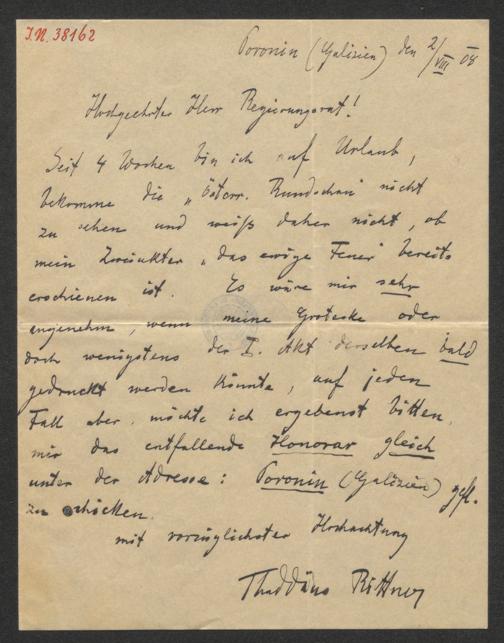 I.N. 38162
Poronin (Galizien) den 2/VIII 08
Hochgeehrter Herr Regierungsrat!
Seit 4 Wochen bin ich auf Urlaub,
bekomme die „Österr. Rundschau" nicht
zu sehen und weiß daher nicht, ob
mein Zweiakter „das ewige Feuer" bereits
erschienen ist. Es wäre mir sehr
angenehm, wenn meine Groteske oder
doch wenigstens der I. Akt derselben bald
gedruckt werden könnte, auf jeden
Fall aber möchte ich ergebenst bitten,
mir das entfallende Honorar gleich
unter der Adresse: Poronin (Galizien) gefl.
zu schicken.
mit vorzüglichster Hochachtung
Thaddäus Rittner